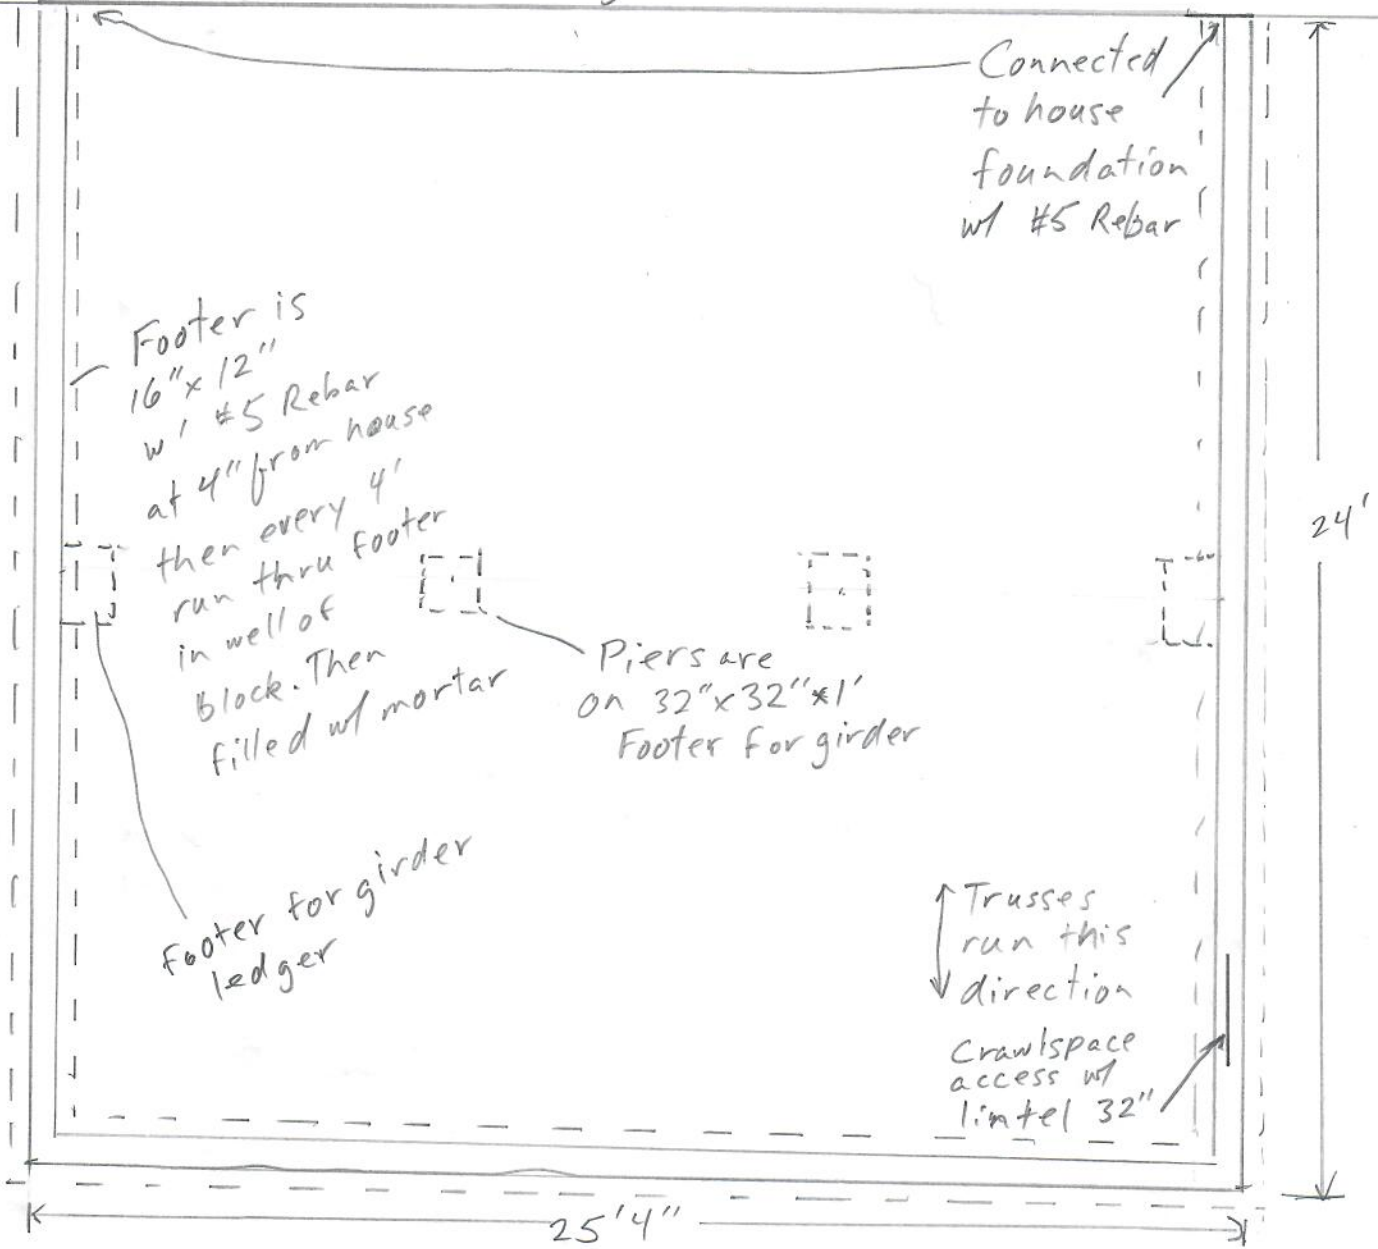 Connected
to house
foundation
w/ #5 Rebar
Footer is
16"x 12"
w/ #5 Rebar
at 4" from house
then every 4'
run thru footer
in well of
block. Then
filled w/ mortar
24'
Piers are
on 32"x32"x1'
Footer for girder
Footer for girder
ledger
Trusses
run this
direction
Crawlspace
access w/
lintel 32"
25'4"